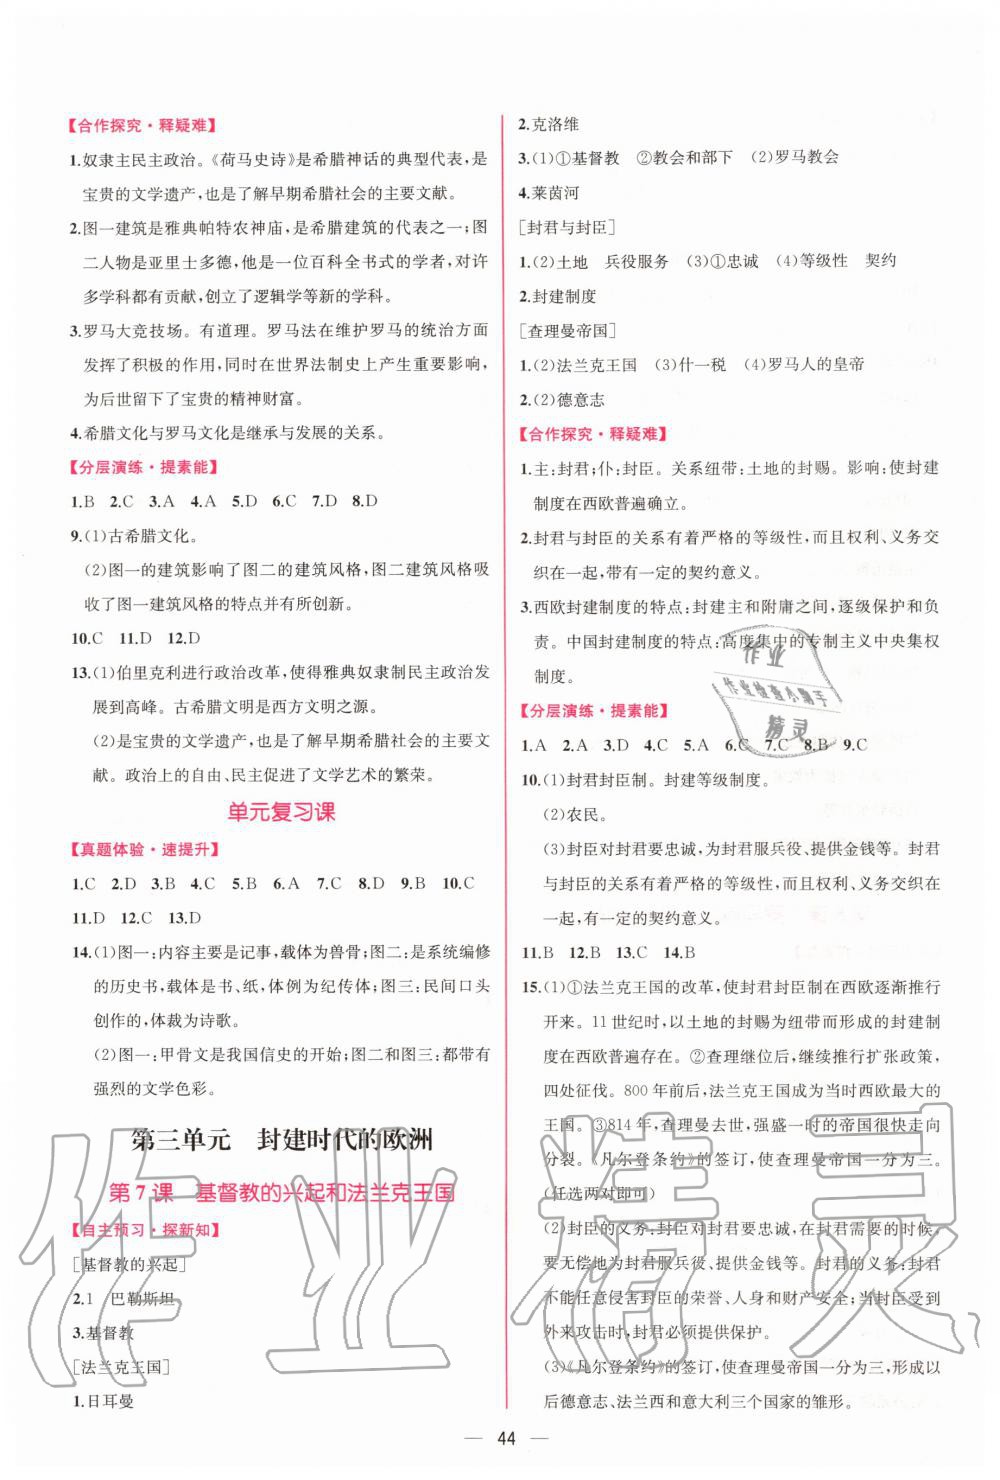 【合作探究·释疑难】
1.奴隶主民主政治。《荷马史诗》是希腊神话的典型代表,是
宝贵的文学遗产,也是了解早期希腊社会的主要文献。
2.图一建筑是雅典帕特农神庙,是希腊建筑的代表之一;图
二人物是亚里士多德,他是一位百科全书式的学者,对许
多学科都有贡献,创立了逻辑学等新的学科。
3.罗马大竞技场。有道理。罗马法在维护罗马的统治方面
发挥了积极的作用,同时在世界法制史上产生重要影响,
为后世留下了宝贵的精神财富。
4.希腊文化与罗马文化是继承与发展的关系。
【分层演练·提素能】
1.B 2.C 3.A 4.A 5.D 6.C 7.D 8.D
9.(1)古希腊文化。
(2)图一的建筑影响了图二的建筑风格,图二建筑风格吸
收了图一建筑风格的特点并有所创新。
10.C 11.D 12.D
13.(1)伯里克利进行政治改革,使得雅典奴隶制民主政治发
展到高峰。古希腊文明是西方文明之源。
(2)是宝贵的文学遗产,也是了解早期希腊社会的主要文
献。政治上的自由、民主促进了文学艺术的繁荣。
单元复习课
【真题体验·速提升】
1.C 2.D 3.B 4.C 5.B 6.A 7.C 8.D 9.B 10.C
11.D 12.C 13.D
14.(1)图一:内容主要是记事,载体为兽骨;图二:是系统编修
的历史书,载体是书、纸,体例为纪传体;图三:民间口头
创作的,体裁为诗歌。
(2)图一:甲骨文是我国信史的开始;图二和图三:都带有
强烈的文学色彩。
第三单元 封建时代的欧洲
第7课 基督教的兴起和法兰克王国
【自主预习·探新知】
[基督教的兴起]
2.1 巴勒斯坦
3.基督教
[法兰克王国]
1.日耳曼
2.克洛维
3.(1)①基督教 ②教会和部下 (2)罗马教会
4.莱茵河
[封君与封臣]
1.(2)土地 兵役服务 (3)①忠诚 (4)等级性 契约
2.封建制度
[查理曼帝国]
1.(2)法兰克王国 (3)什一税 (4)罗马人的皇帝
2.(2)德意志
【合作探究·释疑难】
1.主:封君;仆:封臣。关系纽带:土地的封赐。影响:使封建
制度在西欧普遍确立。
2.封君与封臣的关系有着严格的等级性,而且权利、义务交
织在一起,带有一定的契约意义。
3.西欧封建制度的特点:封建主和附庸之间,逐级保护和负
责。中国封建制度的特点:高度集中的专制主义中央集权
制度。
【分层演练·提素能】
1.A 2.A 3.D 4.C 5.A 6.C 7.C 8.B 9.C
10.(1)封君封臣制。封建等级制度。
(2)农民。
(3)封臣对封君要忠诚,为封君服兵役、提供金钱等。封君
与封臣的关系有着严格的等级性,而且权利、义务交织在
一起,有一定的契约意义。
11.B 12.B 13.C 14.B
15.(1)①法兰克王国的改革,使封君封臣制在西欧逐渐推行
开来。11世纪时,以土地的封赐为纽带而形成的封建制
度在西欧普遍存在。②查理继位后,继续推行扩张政策,
四处征伐。800年前后,法兰克王国成为当时西欧最大的
王国。③814年,查理曼去世,强盛一时的帝国很快走向
分裂。《凡尔登条约》的签订,使查理曼帝国一分为三。
(任选两对即可)
(2)封臣的义务:封臣对封君要忠诚,在封君需要的时候,
要无偿地为封君服兵役、提供金钱等。封君的义务:封君
不能任意侵害封臣的荣誉、人身和财产安全;当封臣受到
外来攻击时,封君必须提供保护。
(3)《凡尔登条约》的签订,使查理曼帝国一分为三,形成以
后德意志、法兰西和意大利三个国家的雏形。
作业
作业检查小助手
精灵
作业精灵
— 44 —